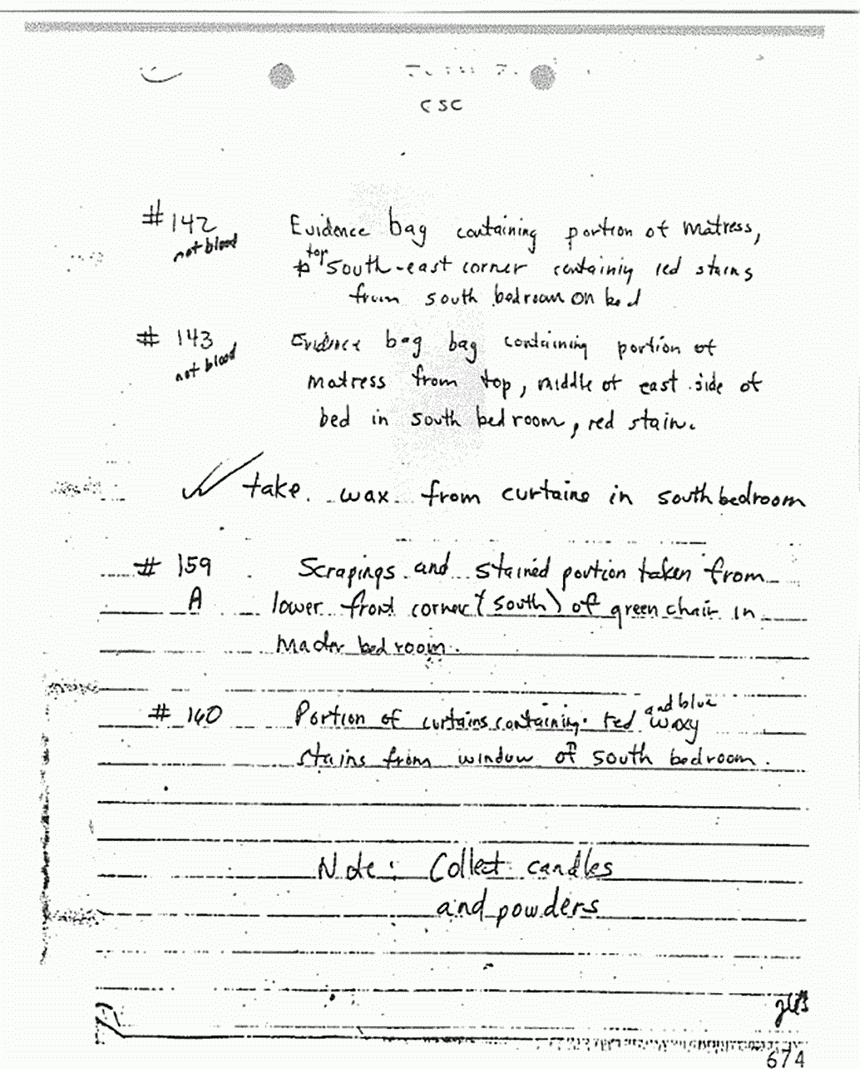 CSC
#142 Evidence bag containing portion of matress,
not blood top south-east corner containing red stains
from south bedroom on bed
# 143 Evidence bag bag containing portion of
not blood matress from top, middle of east side of
bed in south bedroom, red stain.
✓ take wax from curtains in south bedroom
# 159 Scrapings and stained portion taken from
A lower front corner (south) of green chair in
bedroom.
# 160 Portion of curtains containing red and blue waxy
stains from window of south bedroom.
Note: Collect candles
and powders
674